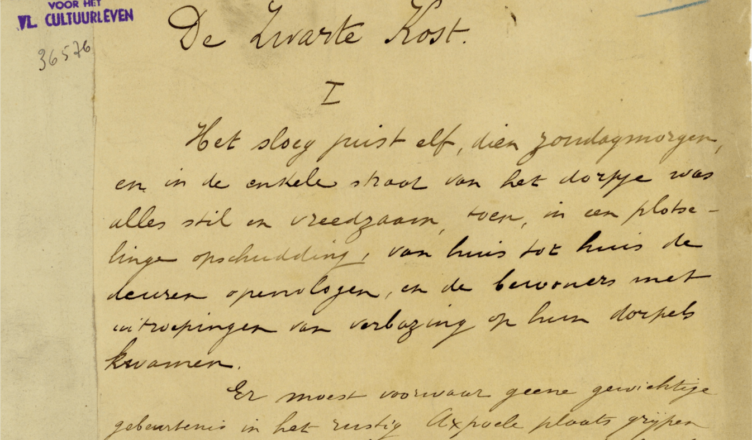 VOOR HET
VL. CULTUURLEVEN
36576
De Zwarte Kost.
I
Het sloeg juist elf, dien zondagmorgen,
en in de enkele straat van het dorpje was
alles stil en vreedzaam, toen, in een plotse-
linge opschudding, van huis tot huis de
deuren openvlogen, en de bewoners met
uitroepingen van verbazing op hun dorpels
kwamen.
Er moest voorwaar geene gewichtige
gebeurtenis in het rustig Axpoele plaats grijpen